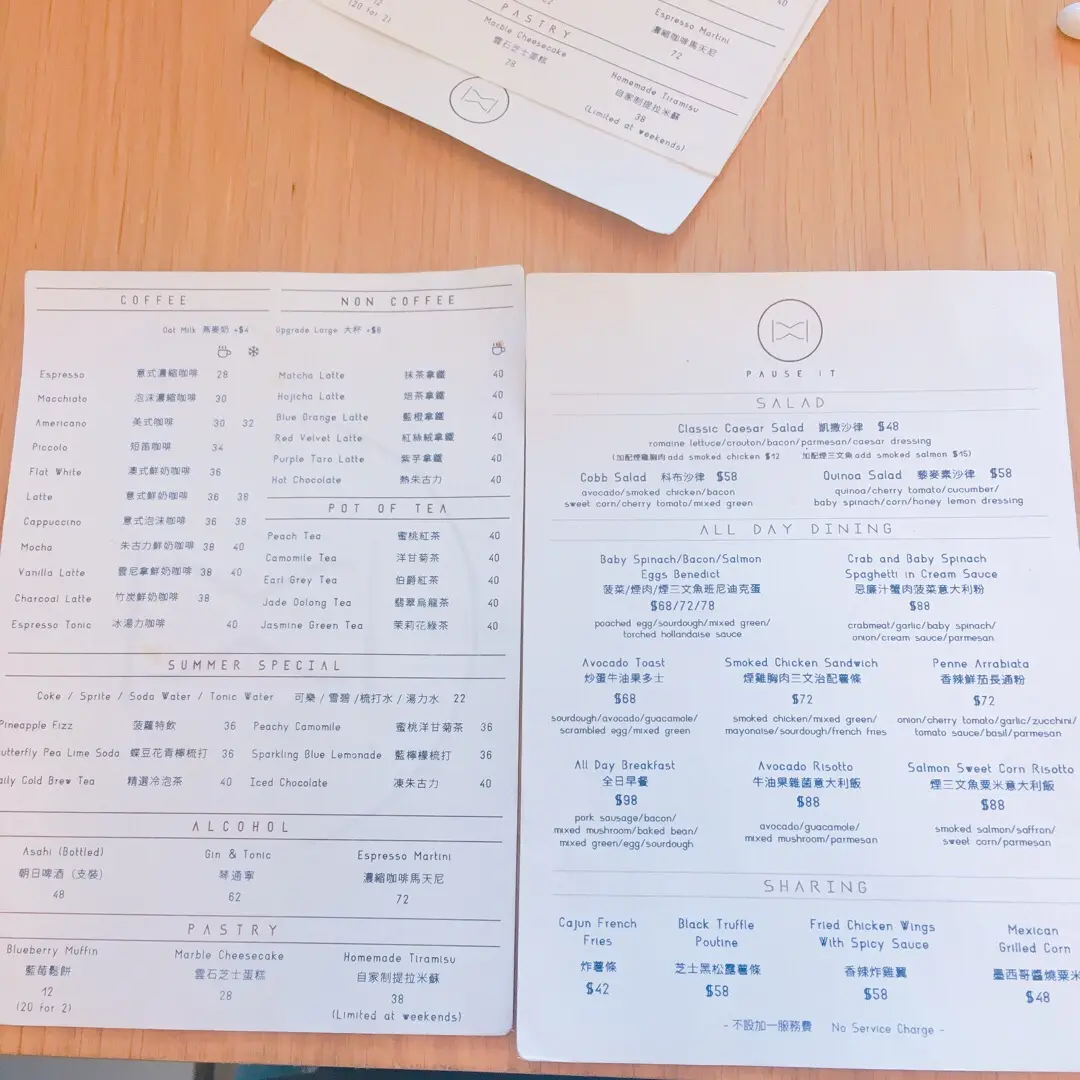 (20 for 2)
PASTRY
40
Marble Cheesecake
雲石芝士蛋糕
28
Espresso Martini
濃縮咖啡馬天尼
72
Homemade Tiramisu
自家制提拉米蘇
38
(Limited at weekends)
COFFEE
Oat Milk 燕麥奶 +$4
Espresso 意式濃縮咖啡 28
Macchiato 泡沫濃縮咖啡 30
Americano 美式咖啡 30 32
Piccolo 短笛咖啡 34
Flat White 澳式鮮奶咖啡 36
Latte 意式鮮奶咖啡 36 38
Cappuccino 意式泡沫咖啡 36 38
Mocha 朱古力鮮奶咖啡 38 40
Vanilla Latte 雲尼拿鮮奶咖啡 38 40
Charcoal Latte 竹炭鮮奶咖啡 38
Espresso Tonic 冰湯力咖啡 40
NON COFFEE
Upgrade Large 大杯 +$8
Matcha Latte 抹茶拿鐵 40
Hojicha Latte 焙茶拿鐵 40
Blue Orange Latte 藍橙拿鐵 40
Red Velvet Latte 紅絲絨拿鐵 40
Purple Taro Latte 紫芋拿鐵 40
Hot Chocolate 熱朱古力 40
POT OF TEA
Peach Tea 蜜桃紅茶 40
Camomile Tea 洋甘菊茶 40
Earl Grey Tea 伯爵紅茶 40
Jade Oolong Tea 翡翠烏龍茶 40
Jasmine Green Tea 茉莉花綠茶 40
SUMMER SPECIAL
Coke / Sprite / Soda Water / Tonic Water 可樂 / 雪碧 / 梳打水 / 湯力水 22
Pineapple Fizz 菠蘿特飲 36 Peachy Camomile 蜜桃洋甘菊茶 36
utterfly Pea Lime Soda 蝶豆花青檸梳打 36 Sparkling Blue Lemonade 藍檸檬梳打 36
aily Cold Brew Tea 精選冷泡茶 40 Iced Chocolate 凍朱古力 40
ALCOHOL
Asahi (Bottled) Gin & Tonic Espresso Martini
朝日啤酒 (支裝) 琴通寧 濃縮咖啡馬天尼
48 62 72
PASTRY
Blueberry Muffin Marble Cheesecake Homemade Tiramisu
藍莓鬆餅 雲石芝士蛋糕 自家制提拉米蘇
12 28 38
(20 for 2) (Limited at weekends)
PAUSE IT
SALAD
Classic Caesar Salad 凱撒沙律 $48
romaine lettuce/crouton/bacon/parmesan/caesar dressing
(加配煙雞胸肉 add smoked chicken $12 加配煙三文魚 add smoked salmon $15)
Cobb Salad 科布沙律 $58 Quinoa Salad 藜麥素沙律 $58
avocado/smoked chicken/bacon quinoa/cherry tomato/cucumber/
sweet corn/cherry tomato/mixed green baby spinach/corn/honey lemon dressing
ALL DAY DINING
Baby Spinach/Bacon/Salmon Crab and Baby Spinach
Eggs Benedict Spaghetti in Cream Sauce
菠菜/煙肉/煙三文魚班尼迪克蛋 忌廉汁蟹肉菠菜意大利粉
$68/72/78 $88
poached egg/sourdough/mixed green/ crabmeat/garlic/baby spinach/
torched hollandaise sauce onion/cream sauce/parmesan
Avocado Toast Smoked Chicken Sandwich Penne Arrabiata
炒蛋牛油果多士 煙雞胸肉三文治配薯條 香辣鮮茄長通粉
$68 $72 $72
sourdough/avocado/guacamole/ smoked chicken/mixed green/ onion/cherry tomato/garlic/zucchini/
scrambled egg/mixed green mayonaise/sourdough/french fries tomato sauce/basil/parmesan
All Day Breakfast Avocado Risotto Salmon Sweet Corn Risotto
全日早餐 牛油果雜菌意大利飯 煙三文魚粟米意大利飯
$98 $88 $88
pork sausage/bacon/ avocado/guacamole/ smoked salmon/saffron/
mixed mushroom/baked bean/ mixed mushroom/parmesan sweet corn/parmesan
mixed green/egg/sourdough
SHARING
Cajun French Black Truffle Fried Chicken Wings Mexican
Fries Poutine With Spicy Sauce Grilled Corn
炸薯條 芝士黑松露薯條 香辣炸雞翼 墨西哥醬燒粟米
$42 $58 $58 $48
- 不設加一服務費 No Service Charge -